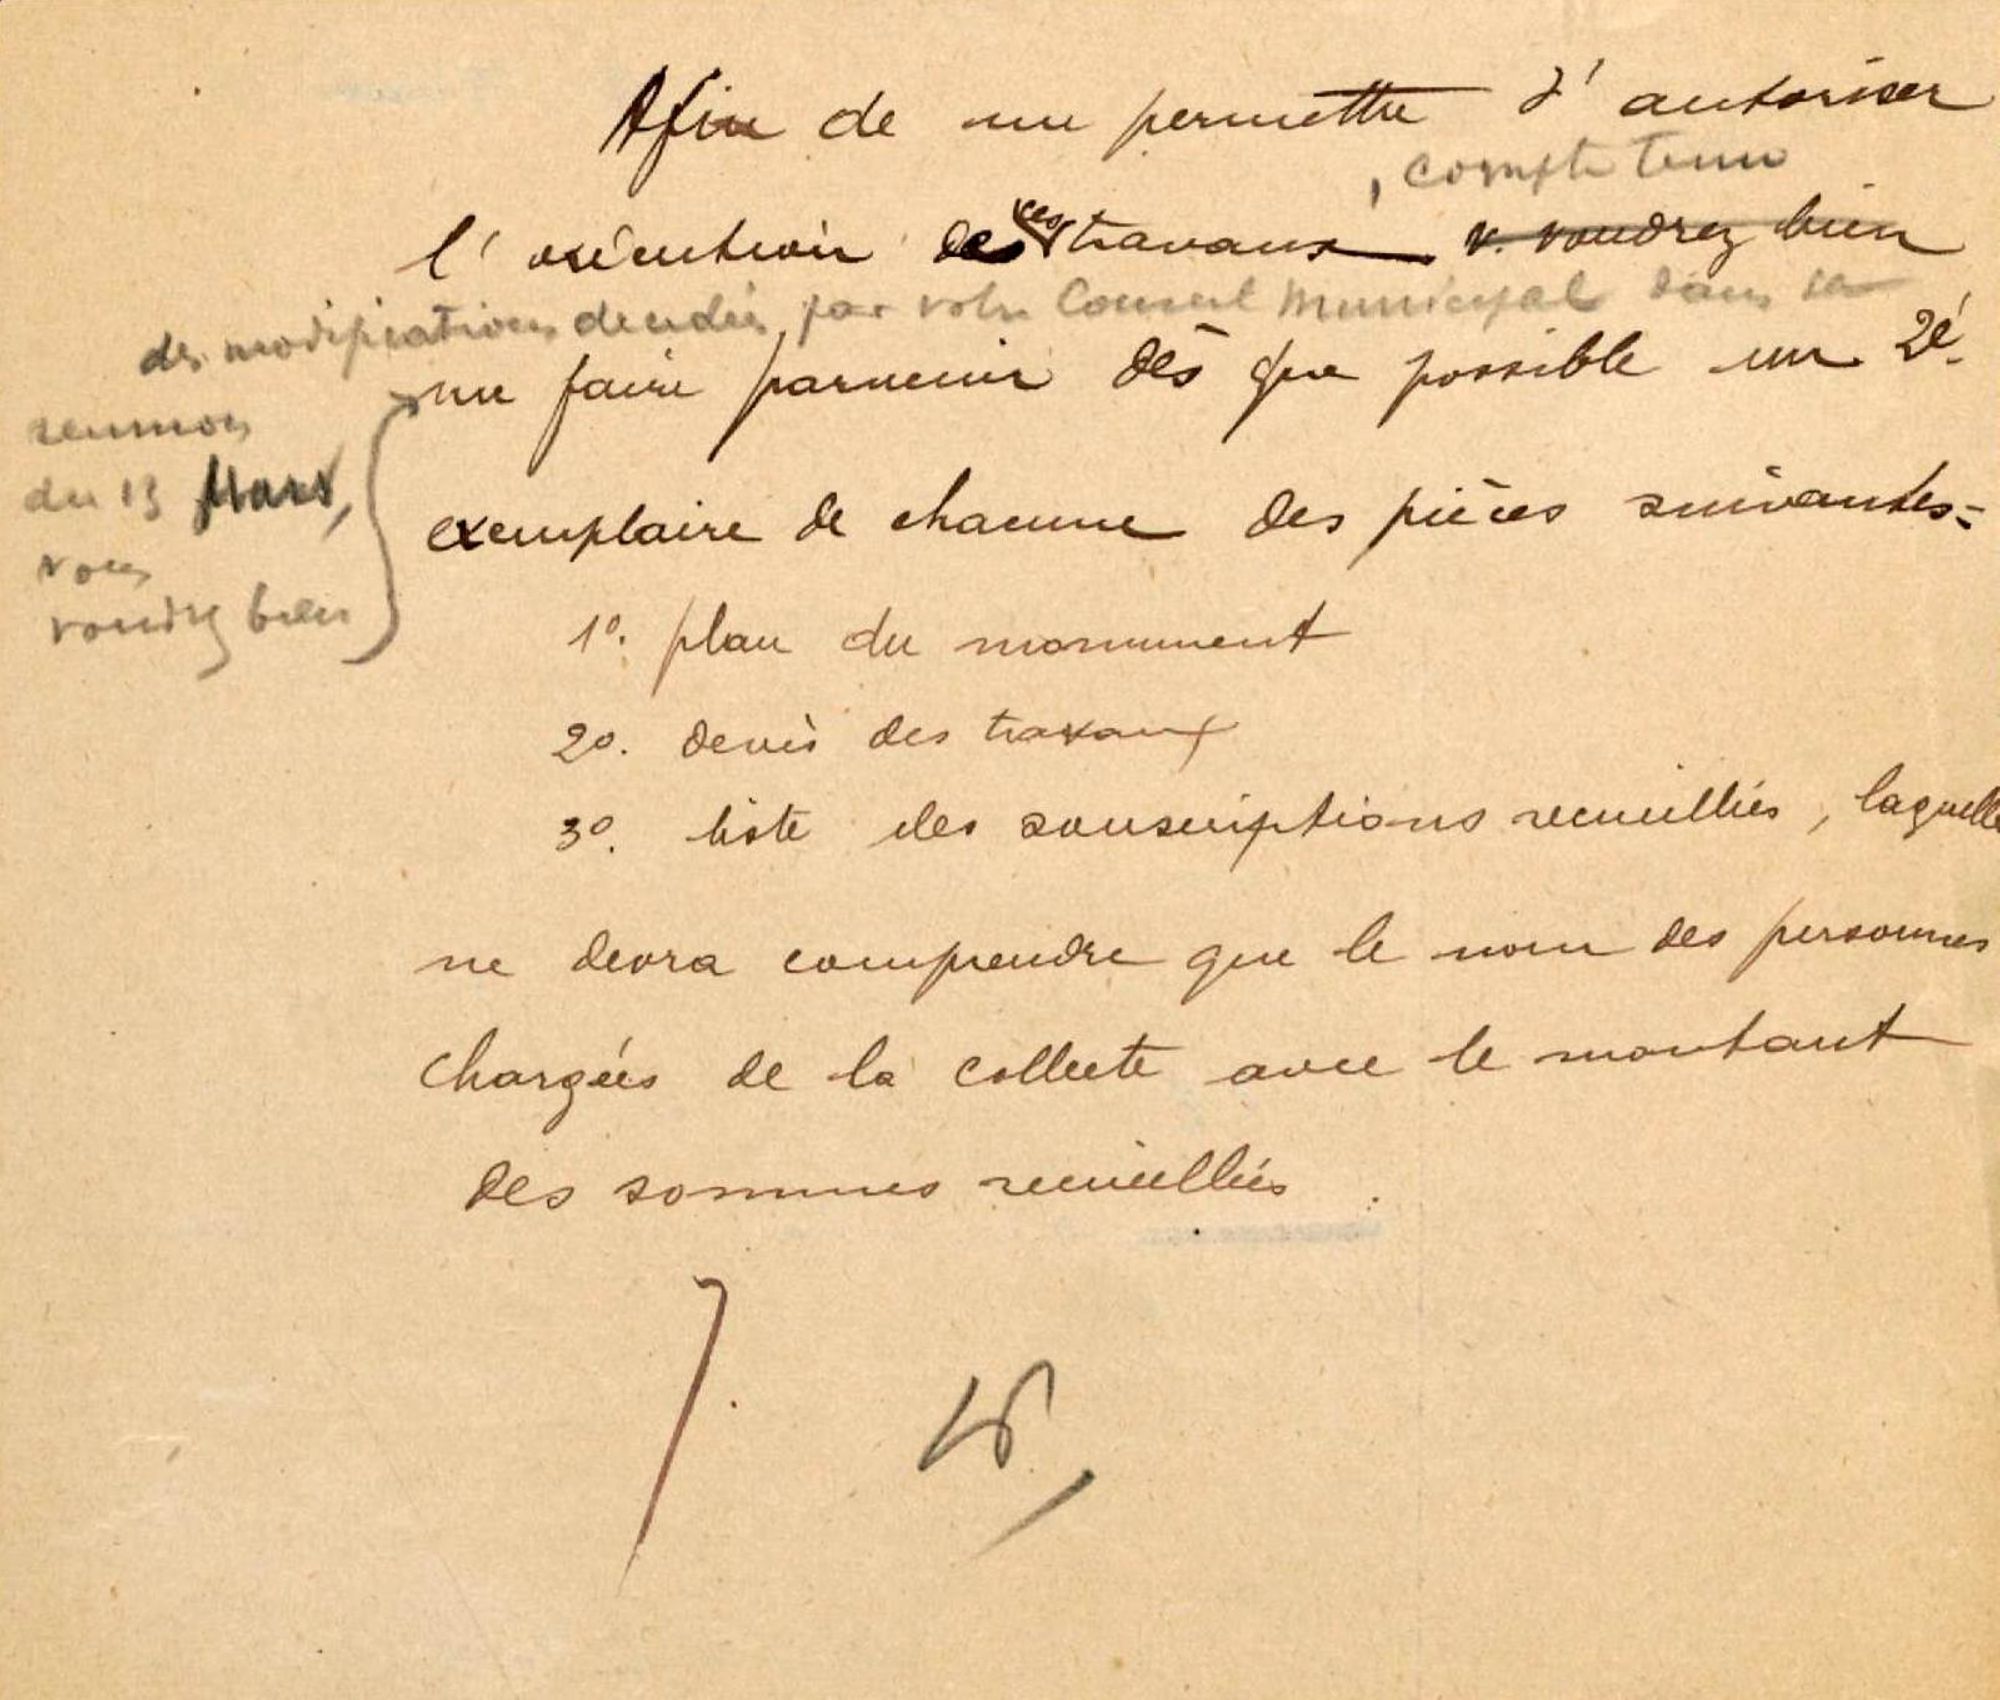 Afin de me permettre d'autoriser
, compte tenu
l'exécution de ces travaux v. voudrez bien
des modifications décidées par votre Conseil Municipal dans sa
me faire parvenir dès que possible un 2è
reunion
du 13 Mars,
vous
voudrez bien
exemplaire de chacune des pièces suivantes =
1º. plan du monument
2º. devis des travaux
3º. liste des souscriptions recueillies, laquelle
ne devra comprendre que le nom des personnes
chargées de la collecte avec le montant
des sommes recueillies.